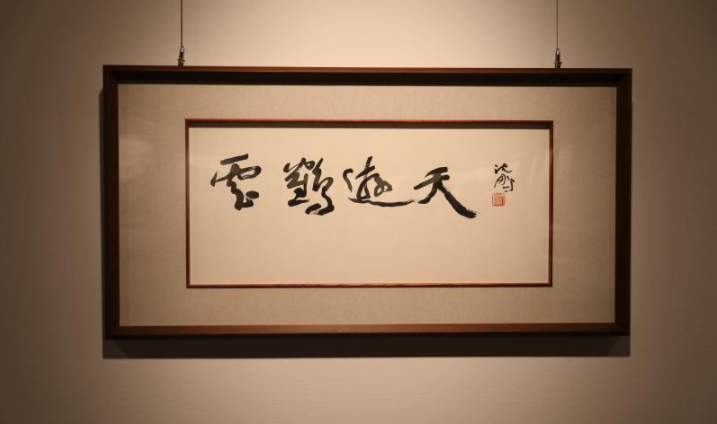 雲鶴遊天
沈鵬